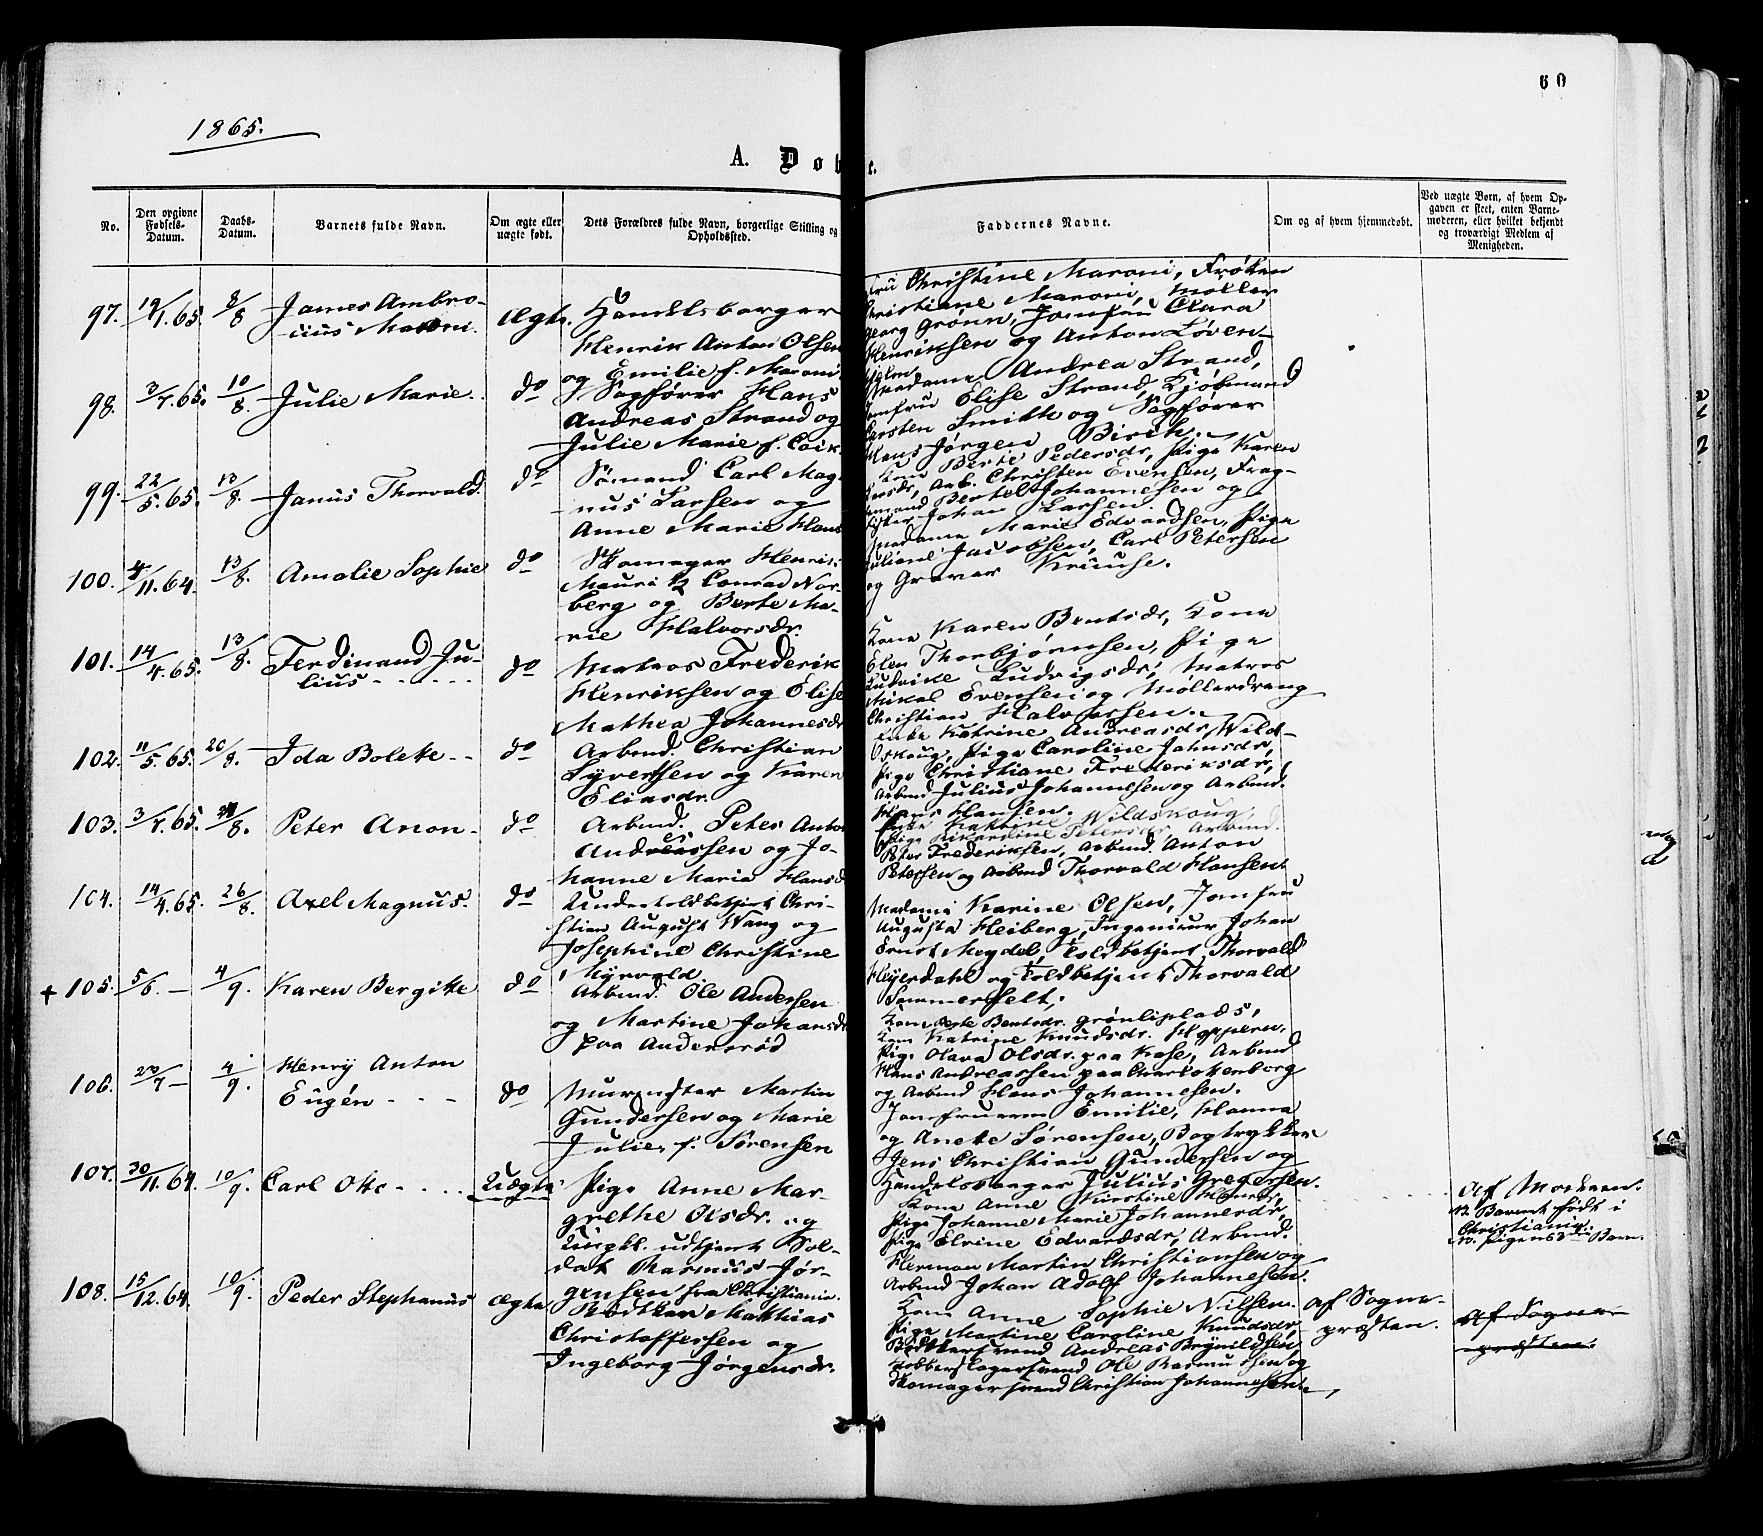 60
1865.
A. Døbte.
No.
Den opgivne Fødsels-Datum.
Daabs-Datum.
Barnets fulde Navn.
Om ægte eller uægte født.
Dets Forældres fulde Navn, borgerlige Stilling og Opholdssted.
Faddernes Navne.
Om og af hvem hjemmedøbt.
Ved uægte Børn, af hvem Opgaven er skeet, enten Barnemoderen, eller hvilket bekjendt og troværdigt Medlem af Menigheden.
97. 19/1.65. 8/8 James Ambro-
sius Maroni. ægte.
Handelsborger
Henrik Anton Olsen
og Emilie f. Maroni
Fru Christine Maroni, Frøken
Christiane Maroni, Møller
Georg Grønn, Jomfru Clara
Henriksen og Anton Løven-
98. 3/7.65. 10/8. Julie Marie. do
Sagfører Hans
Andreas Strand og
Julie Marie f.
Madame Andrea Strand,
Jomfru Elise Strand, Kjøbmand
Carsten Smith og Sagfører
Hans Jørgen Birch.
99. 22/5.65. 13/8. Janus Thorvald. do
Sømand Carl Mag-
nus Larsen og
Anne Marie Hans
Kone Berte Pedersdr, Pige Karen
Arb. Christen Evensen, Frag-
mand Bertel Johannesen og
Johan Larsen.
100. 4/11.64. 13/8. Amalie Sophie do
Skomager Henrik
Mauritz Conrad Nor-
berg og Berte Ma-
rie Halvorsdr.
Madame Marie Edvardsen, Pige
Juliane Jacobsen, Carl Petersen
og Graver Kruuse.
101. 14/4.65. 13/8. Ferdinand Ju-
lius - - - - - do
Matros Frederik
Henriksen og Elise
Mathea Johannesdr
Kone Karen Berntsdr, Kone
Elen Thorbjørnsen, Pige
Ludvike Ludvigsdr, Matros
Mikal Evensen og Møllerdreng
Christian Halvorsen.
102. 11/5.65. 20/8. Ida Bolete - - do
Arbmd. Christian
Syvertsen og Karen
Eliasdr.
Enke Katrine Andreasdr Wild-
skoug, Pige Caroline Jahnsdr,
Pige Christiane Frederiksdr,
Arbmd Julius Johannesen og Arbmd.
Hans Hansen.
103. 3/7.65. /8. Peter Anon- do
Arbmd. Peter Anton
Andreassen og Jo-
hanne Maria Hansd
Enke Katrine Wildskoug,
Pige Petersdr Arbmd.
Peter Frederiksen, Arbmd Anton
Petersen og Arbmd Thorvald Hansen.
104. 14/4.65. 26/8. Axel Magnus. do
Undertoldbetjent Chri-
stian August Wang og
Josephine Christine
Myrvold
Madame Karine Olsen, Jomfru
Augusta Heiberg, Ingenieur Johan
Ernst Mogdel, Toldbetjent Thorvald
Heyerdahl og Toldbetjent Thorvald
Sommerfelt.
+ 105. 5/6. - 4/9. Karen Bergitte do
Arbmd. Ole Andersen
og Martine Johansdr
paa Andersrød
Kone Berte Berntsdr. Grønliplads,
Kone Katrine Knudsdr. Hopperen,
Pige Olava Olsdr. paa Kase, Arbmd
Hans Andreassen paa Charlottenborg
og Arbmd Hans Johannesen.
106. 20/7 - 4/9. Henry Anton
Eugén - - - do
Murmester Martin
Gundersen og Marie
Julie, f. Sørensen
Jomfruerne Emilie, Hanna
og Anete Sørensen, Bogtrykker
Jens Christian Gundersen og
Handelsborger Julius Gregersen.
107. 30/11.64. 10/9. Carl Otto - - - - Uægte
Pige Anne Mar-
grethe Olsdr. og
udtjent Sol-
dat Rasmus Jør-
gensen fra Christiania.
Kone Anne Kirstine
Pige Johanne Marie Johannesdr,
Pige Elvine Edvardsdr, Arbmd.
Herman Martin Christiansen og
Arbmd Johan Adolf Johannesen.
Af Moderen.
N. Barnet født i
Christiania.
Pigens 3die Barn.
108. 15/12.64. 10/9. Peder Stephanus ægte
Bødtker Mathias
Christoffersen og
Ingeborg Jørgensdr.
Kone Anne Sophie Nilsen.
Pige Martine Caroline Knudsdr,
Bødkersvend Andreas Brynildsen,
Kobberslagersvend Ole Rasmussen og
Skomagersvend Christian Johannesen.
Af Sogne-
præsten.
Af Sogne-
præsten.